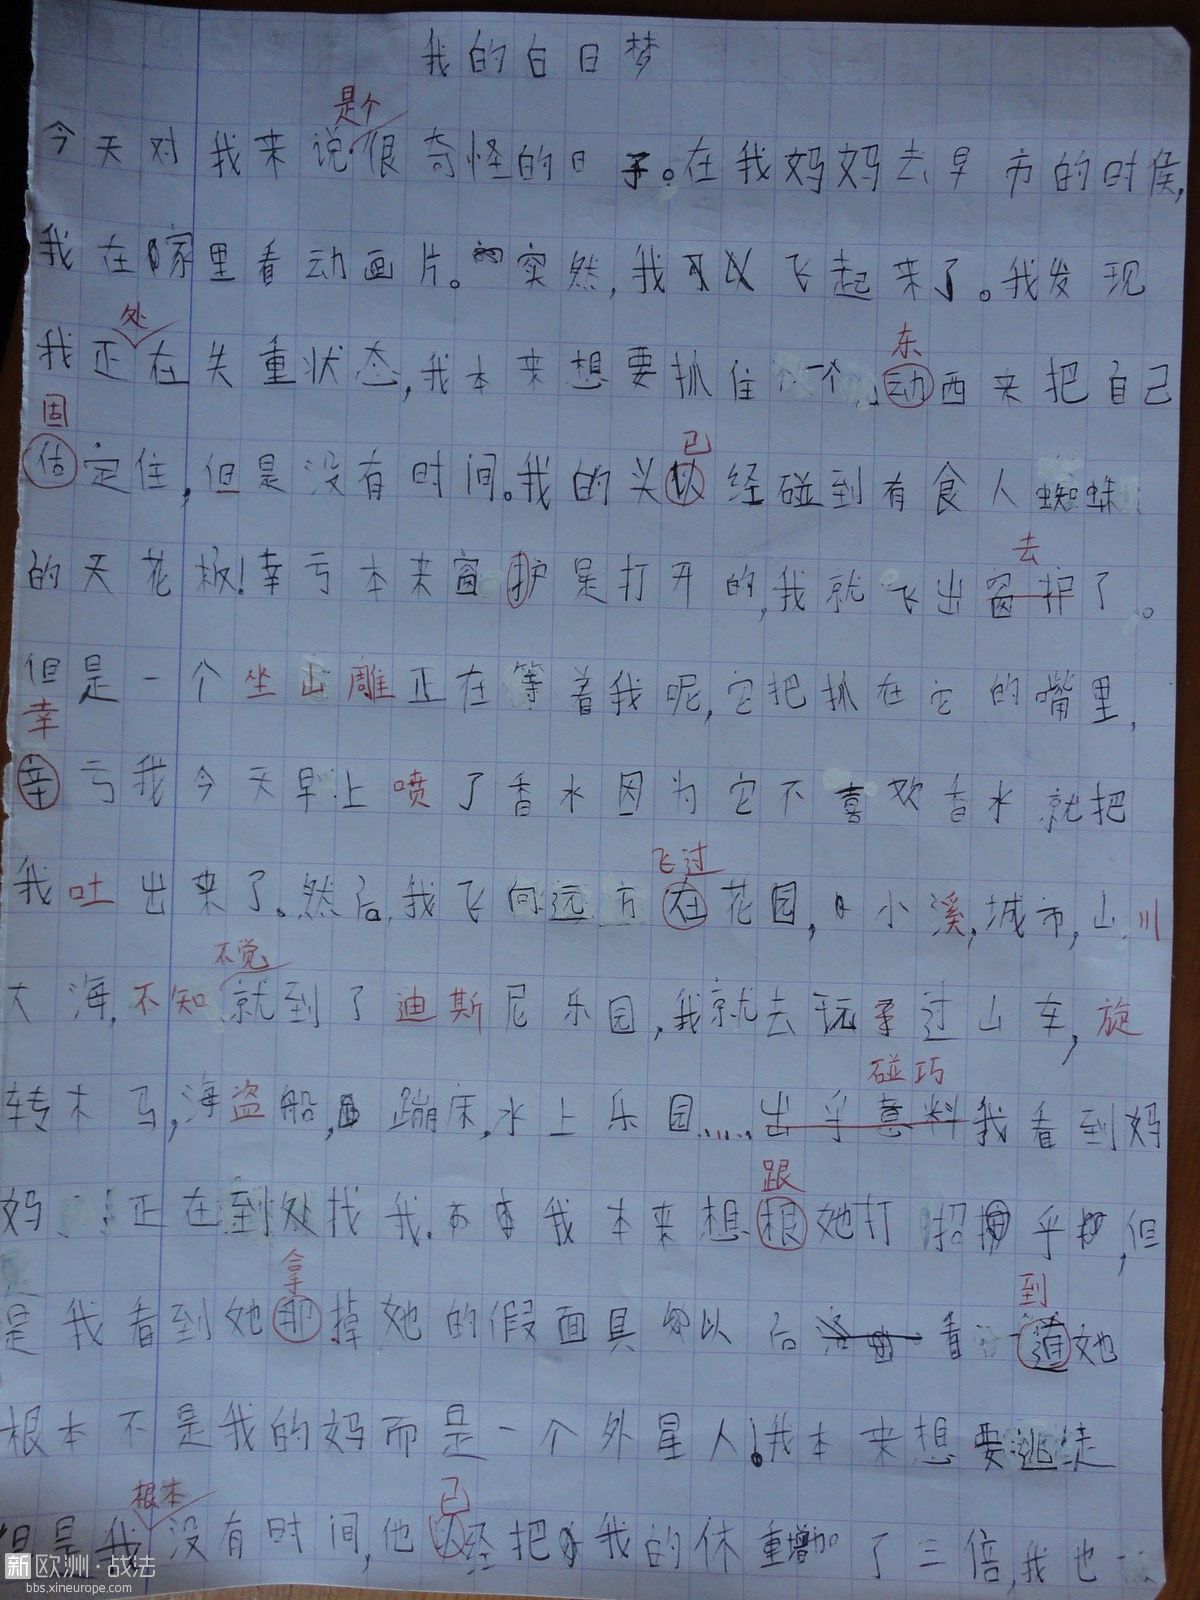 我的白日梦
是个
今天对我来说很奇怪的日子。在我妈妈去早市的时侯,
我在家里看动画片。突然,我可以飞起来了。我发现
处
我正在失重状态,我本来想要抓住一个动西来把自己
东
固
估定住,但是没有时间。我的头以经碰到有食人蜘蛛
已
的天花板!幸亏本来窗护是打开的,我就飞出窗护了。
去
但是一个坐山雕正在等着我呢,它把抓在它的嘴里,
幸
辛亏我今天早上喷了香水因为它不喜欢香水就把
我吐出来了。然后,我飞向远方在花园,小溪,城市,山川
飞过
不觉
大海,不知就到了迪斯尼乐园,我就去玩过山车,旋
转木马,海盗船,蹦床,水上乐园……出乎意料我看到妈
碰巧
妈正在到处找我.我本来想根她打招乎,但
跟
是我看到她那掉她的假面具以后看道她
拿
到
根本不是我的妈而是一个外星人!我本来想要逃走
根本
但是我没有时间,他以经把我的体重增加了三倍,我也
已
新欧洲·战法
bbs.xineurope.com